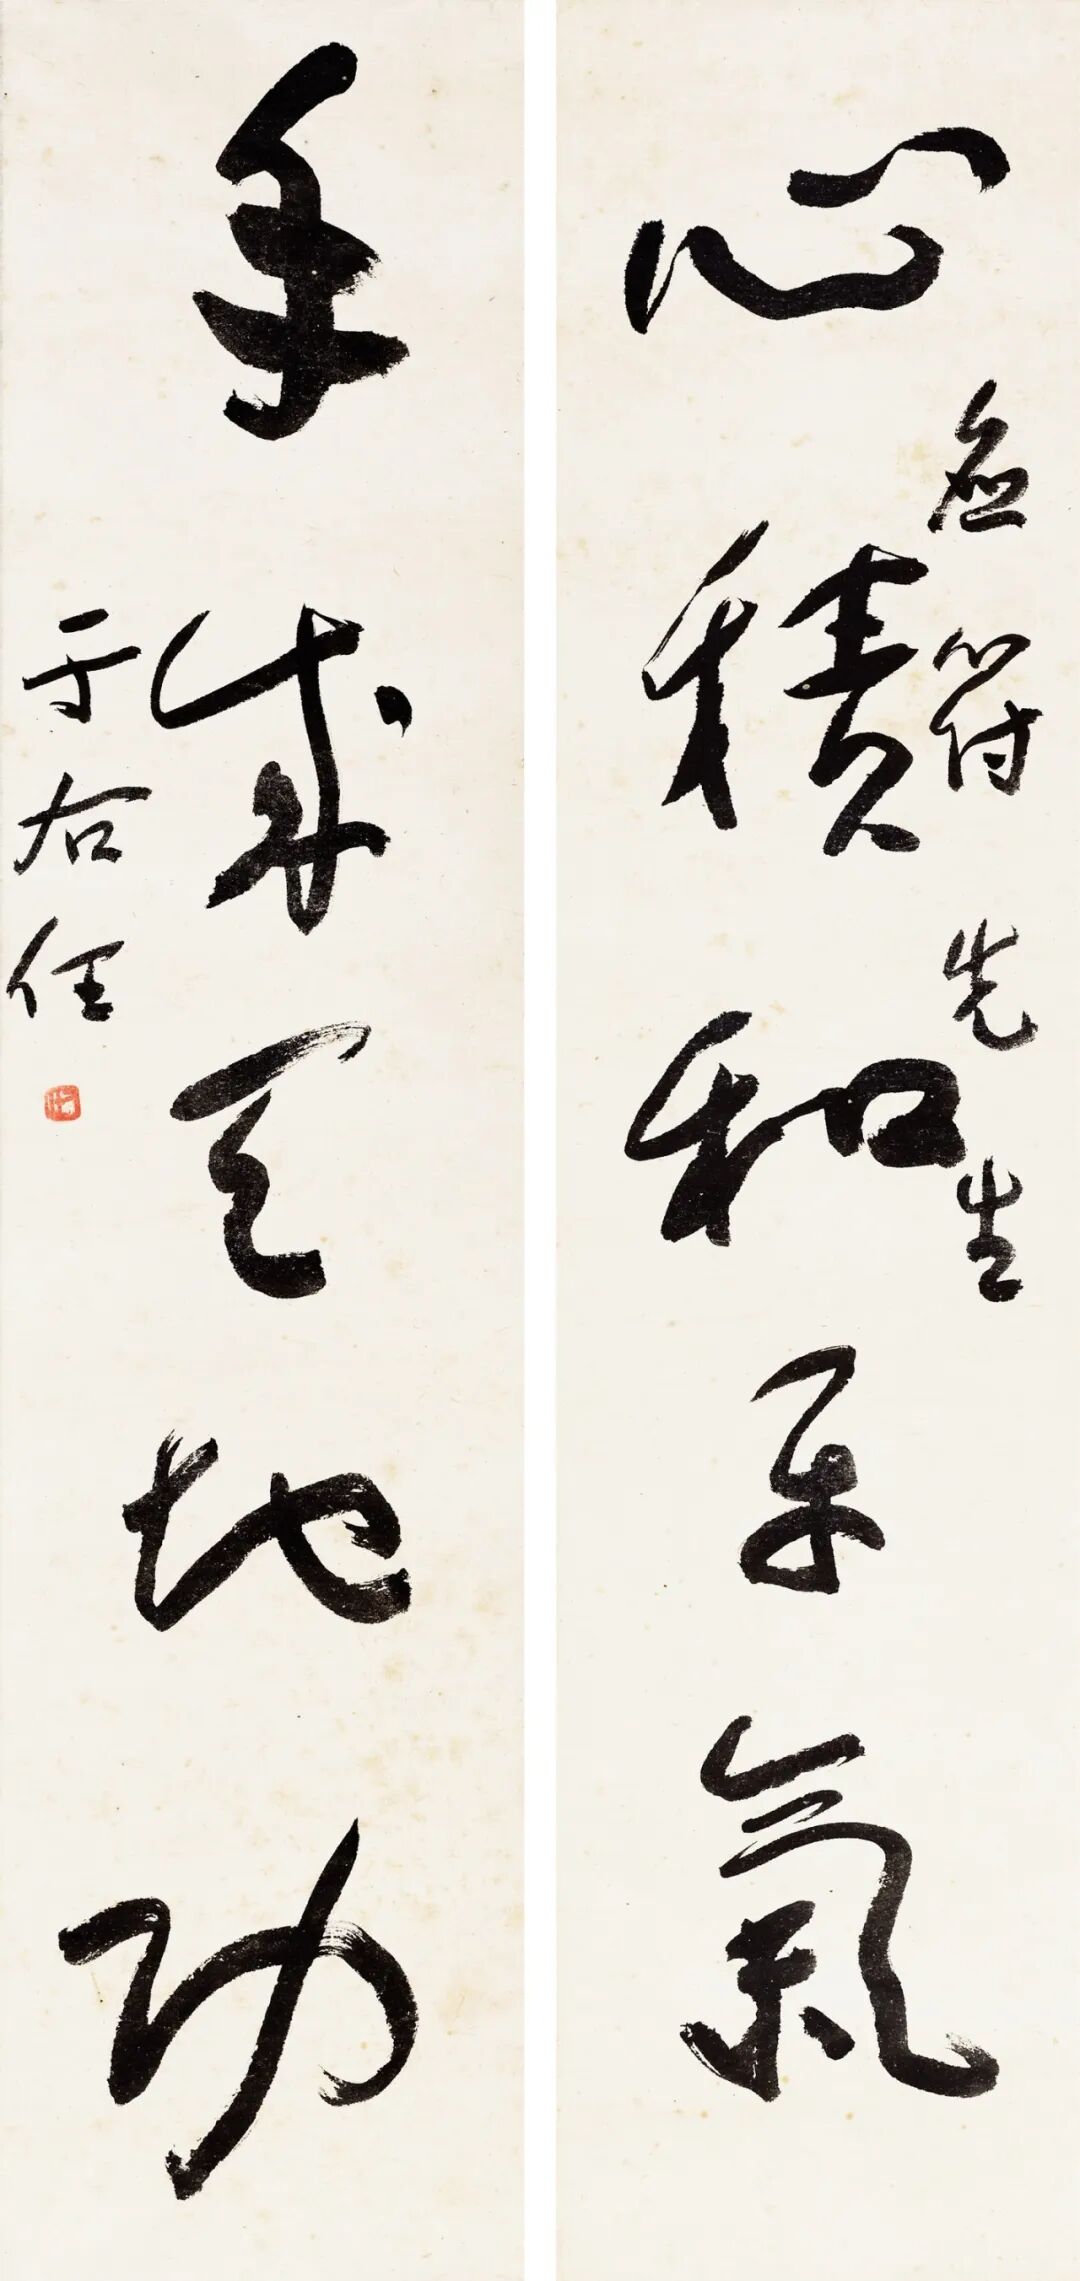 心積和平氣
應符先生
手成天地功
于右任